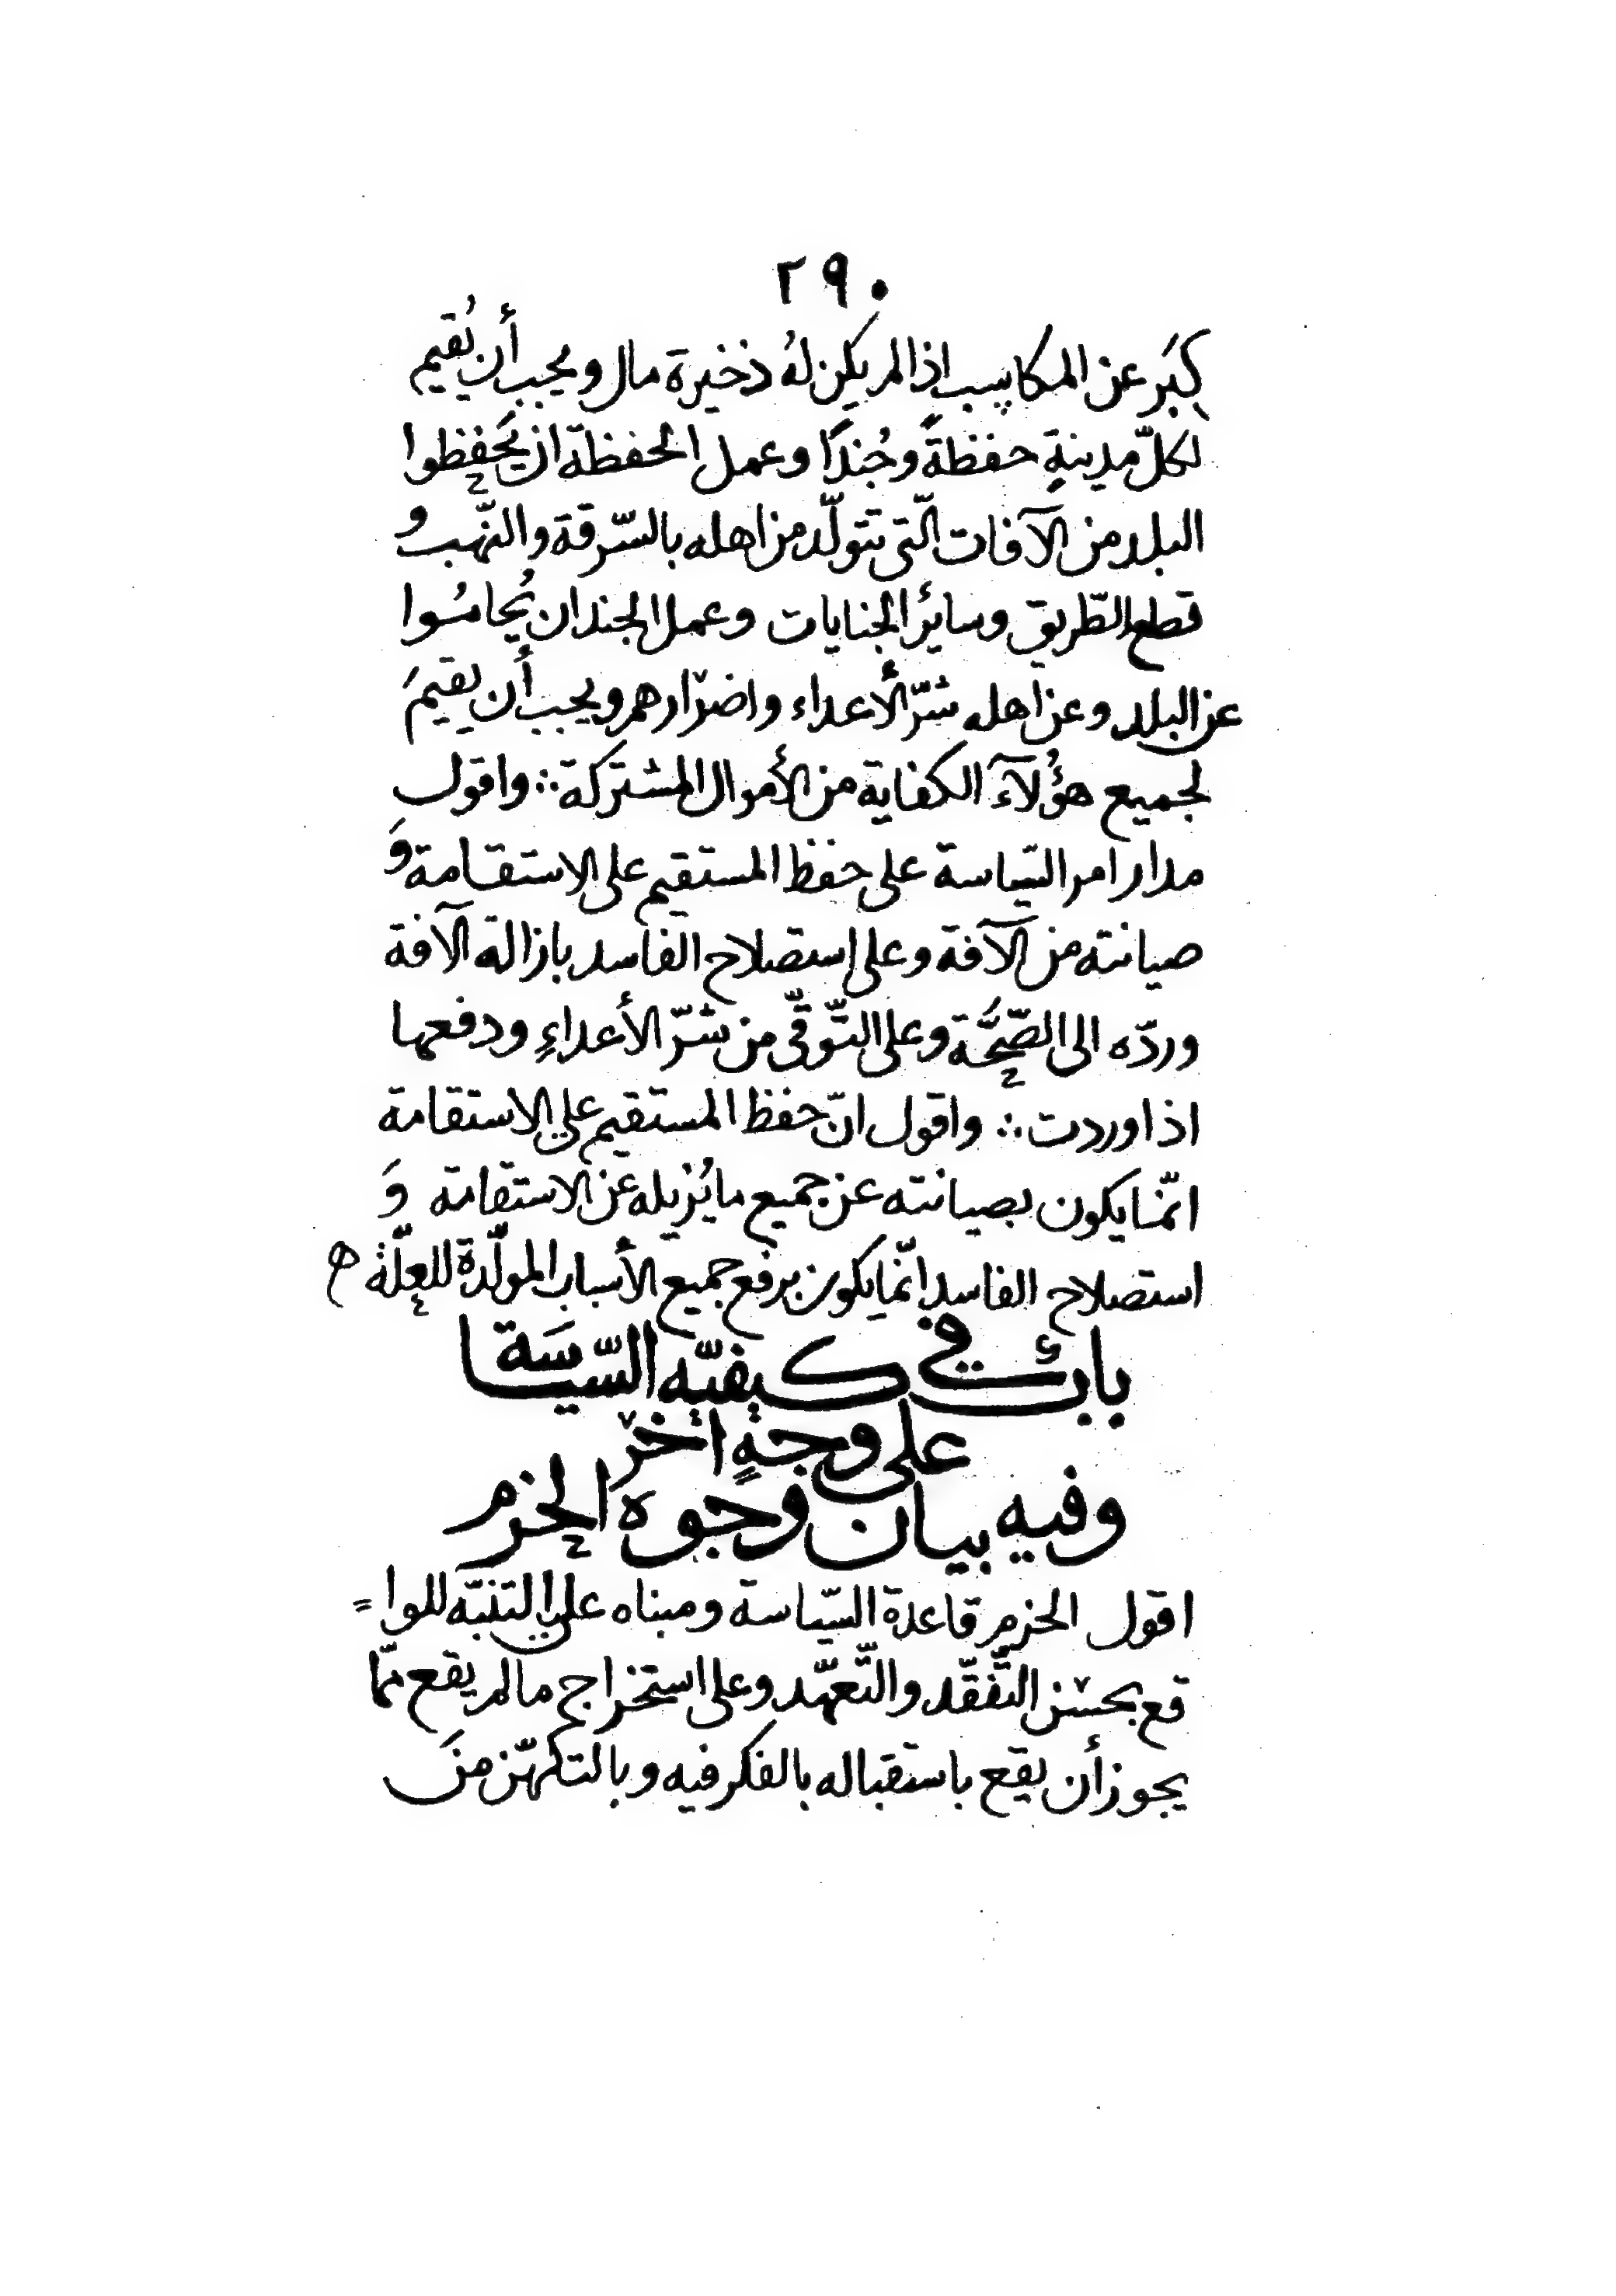 ٢٩٠
كبَر عن المكاسب اذا لم يكن لهُ ذخيرة مال ويجب أن يُقيم
لكلّ مدينةٍ حفظةً وجُندًا وعمل الحفظة ان يَحفظوا
البلد من الآفات الّتى تتولّد من اهله بالسّرقة والنّهب و
قطع الطّريق وسائر الجنايات وعمل الجند ان يُحاموا
عن البلد وعن اهله شرّ الأعداء واضرارهم ويجب أن يقيمَ
لجميع هؤُلآء الكفاية من الأموال المشتركة ∴ واقول
مدار امر السّياسة على حفظ المستقيم على الاستقامة وَ
صيانته من الآفة وعلى استصلاح الفاسد بازالة الآفة
وردّه الى الصّحَّة وعلى التّوقّى من شرّ الأعداءِ ودفعها
اذا وردت ∴ واقول انّ حفظ المستقيم على الاستقامة
انّما يكون بصيانته عن جميع ما يُزيله عن الاستقامة وَ
استصلاح الفاسد انّما يكون برفع جميع الأسباب المولّدة للعلّة
بابٌ في كيفيّه السّياسَة
على وجهٍ اٰخر
وفيه بيان وجوه الحزم
اقول الحزم قاعدة السّياسة ومبناه على التنبّه للوا=
قع بحسن التّفقّد والتّعهّد وعلى استخراج ما لم يقع ممّا
يجوز أن يقع باستقباله بالفكر فيه وبالتكهّن منَ